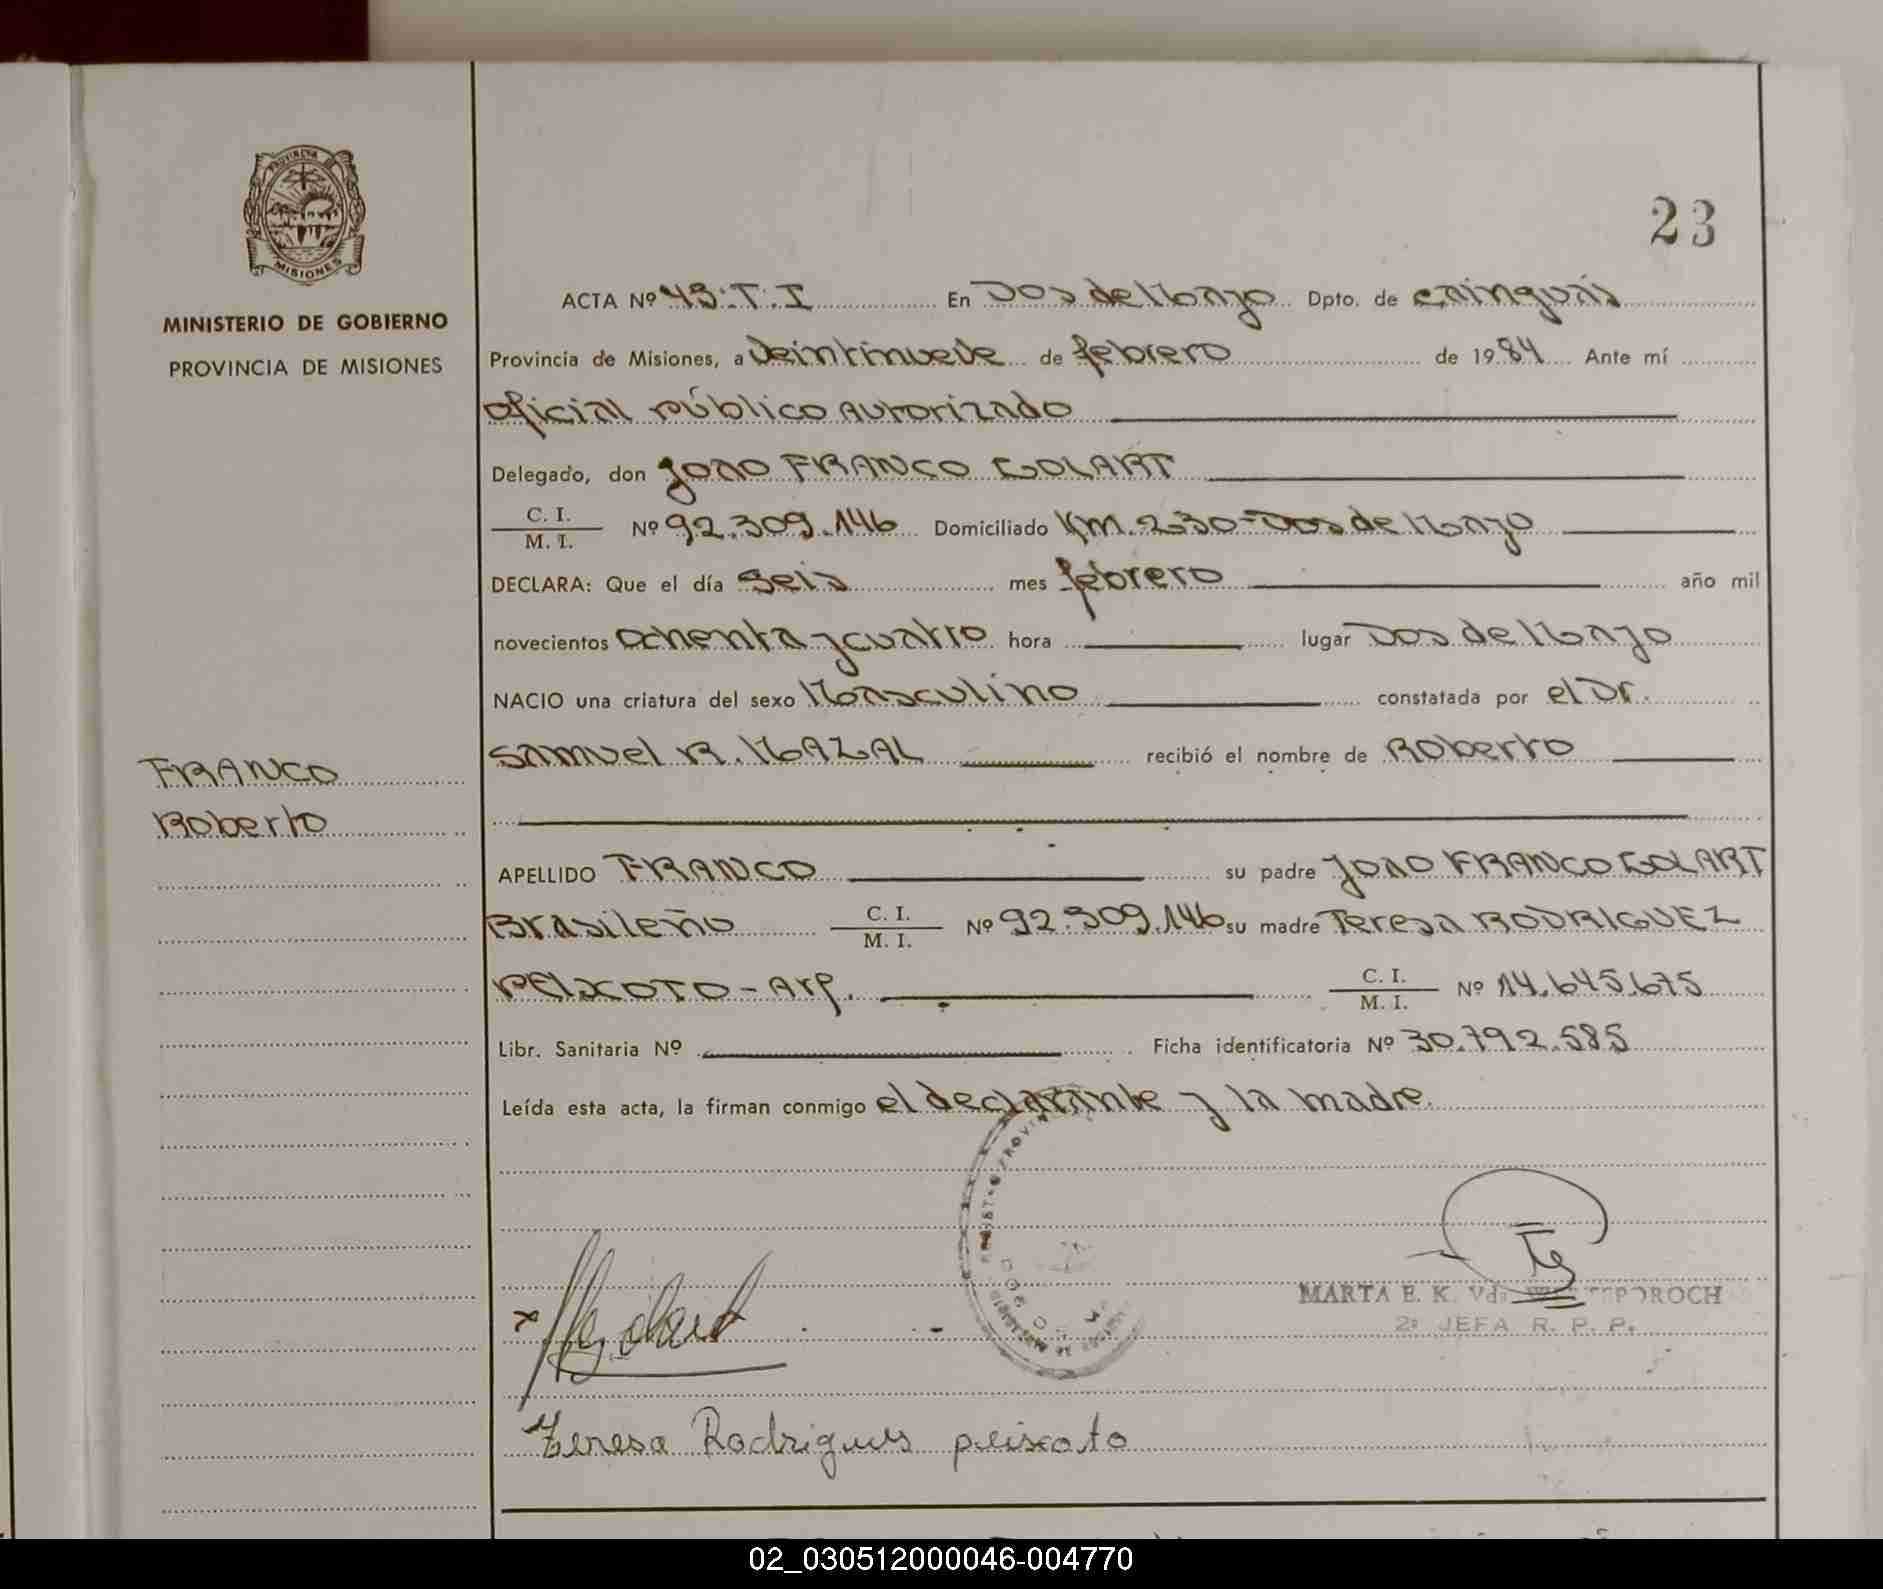 PROVINCIA
MISIONES
MINISTERIO DE GOBIERNO
PROVINCIA DE MISIONES
FRANCO
Roberto
23
ACTA Nº 43.T.I En Dos de Mayo Dpto. de Cainguás
Provincia de Misiones, a veintinueve de febrero de 1984 Ante mí
oficial público autorizado
Delegado, don Joao FRANCO GOLART
C. I. / M. I. Nº 92.309.146 Domiciliado Km. 230-Dos de Mayo
DECLARA: Que el día seis mes febrero año mil
novecientos ochenta y cuatro hora lugar Dos de Mayo
NACIO una criatura del sexo Masculino constatada por el Dr.
Samuel R. MAZAL recibió el nombre de Roberto
APELLIDO FRANCO su padre Joao FRANCO GOLART
Brasileño C. I. / M. I. Nº 92.309.146 su madre Teresa RODRIGUEZ
PEIXOTO - Arg. C. I. / M. I. Nº 14.645.675
Libr. Sanitaria Nº Ficha identificatoria Nº 30.792.585
Leída esta acta, la firman conmigo el declarante y la madre.
MARTA E. K. Vda
2ª JEFA R. P. P.
Teresa Rodrigues peixoto
02_030512000046-004770